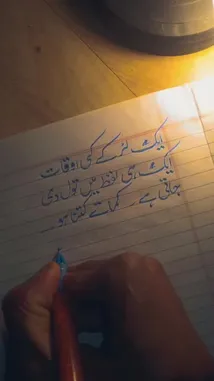 ایک لڑکے کی اوقات
ایک ہی لفظ میں تول دی
جاتی ہے ۔ کماتے کتنا ہو